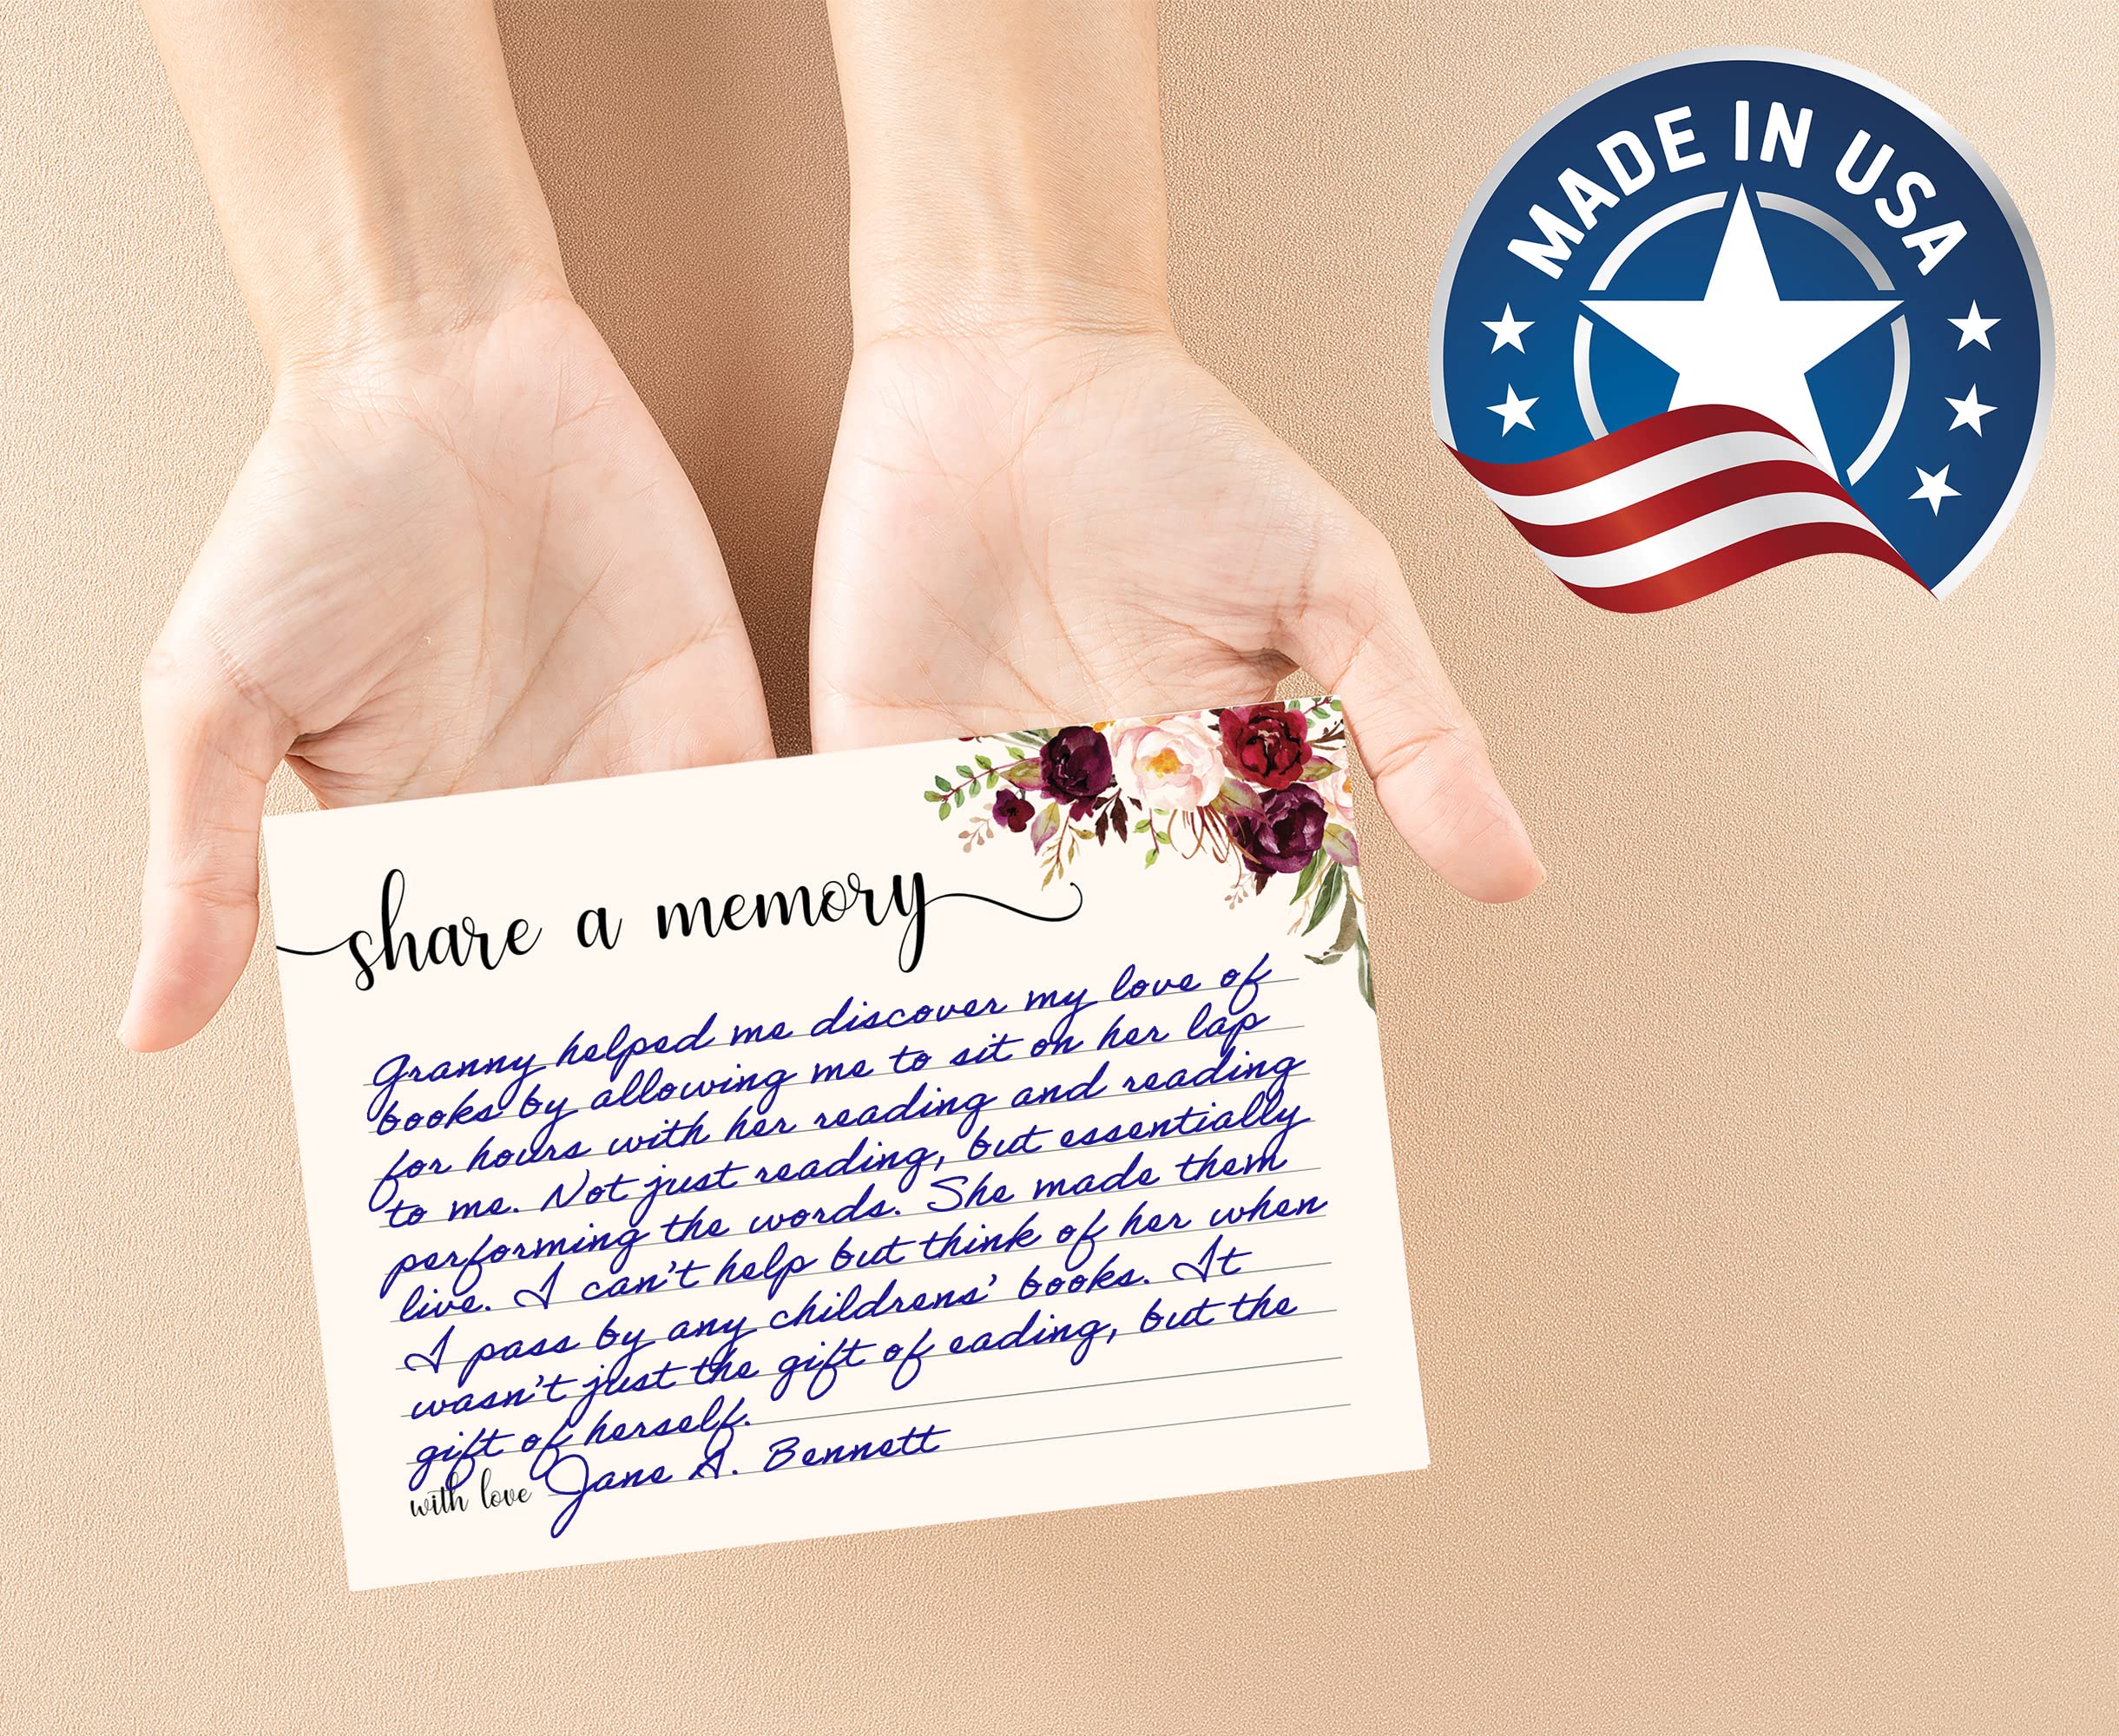 MADE IN USA
share a memory
Granny helped me discover my love of
books by allowing me to sit on her lap
for hours with her reading and reading
to me. Not just reading, but essentially
performing the words. She made them
live. I can't help but think of her when
I pass by any childrens' books. It
wasn't just the gift of eading, but the
gift of herself.
with love Jane A. Bennett